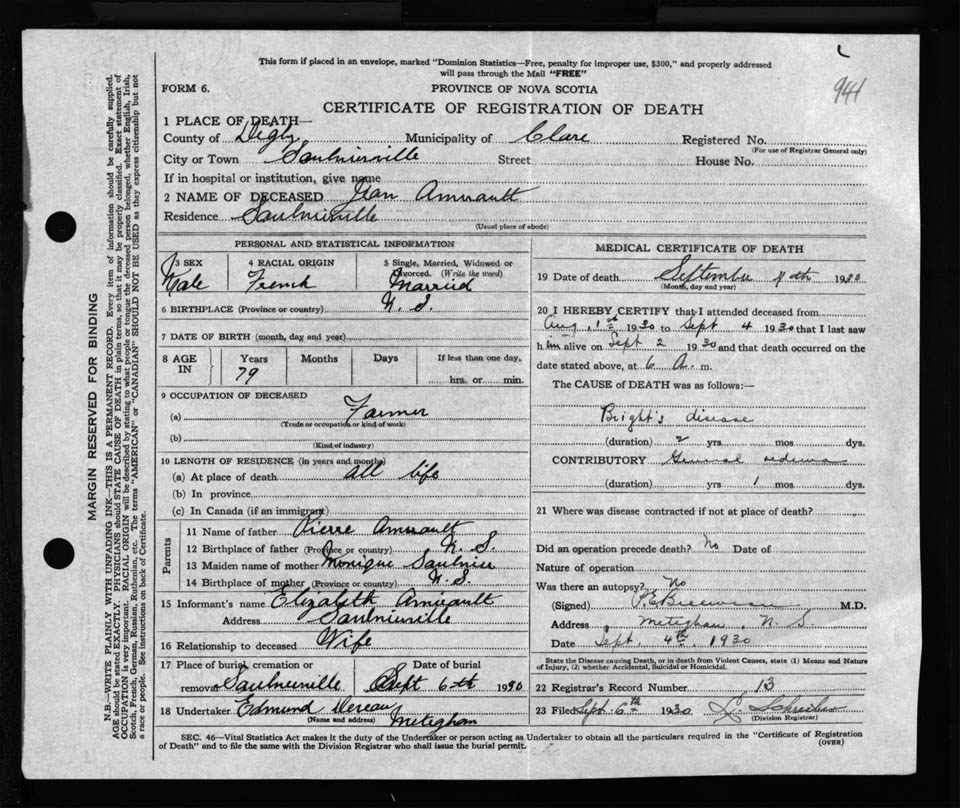 This form if placed in an envelope, marked "Dominion Statistics—Free, penalty for improper use, $300," and properly addressed
will pass through the Mail "FREE"
941
FORM 6.
PROVINCE OF NOVA SCOTIA
CERTIFICATE OF REGISTRATION OF DEATH
1 PLACE OF DEATH—
County of Digby Municipality of Clare Registered No.
(For use of Registrar General only)
City or Town Saulnierville Street House No.
If in hospital or institution, give name
2 NAME OF DECEASED Jean Amirault
Residence Saulnierville
(Usual place of abode)
PERSONAL AND STATISTICAL INFORMATION
3 SEX 4 RACIAL ORIGIN 5 Single, Married, Widowed or
Divorced. (Write the word)
Male French Married
6 BIRTHPLACE (Province or country) N. S.
7 DATE OF BIRTH (month, day and year)
8 AGE IN Years Months Days If less than one day.
79 hrs. or min.
9 OCCUPATION OF DECEASED
(a) Farmer
(Trade or occupation or kind of work)
(b)
(Kind of industry)
10 LENGTH OF RESIDENCE (in years and months)
(a) At place of death all life
(b) In province
(c) In Canada (if an immigrant)
Parents
11 Name of father Pierre Amirault
12 Birthplace of father (Province or country) N. S.
13 Maiden name of mother Monique Saulnier
14 Birthplace of mother (Province or country) N. S.
15 Informant's name Elizabeth Amirault
Address Saulnierville
16 Relationship to deceased Wife
17 Place of burial, cremation or Date of burial
removal Saulnierville Sept 6th 1930
18 Undertaker Edmund Deveau
(Name and address) Meteghan
MEDICAL CERTIFICATE OF DEATH
19 Date of death September 4th 1930
(Month, day and year)
20 I HEREBY CERTIFY that I attended deceased from
Aug. 1st 1930 to Sept 4 1930 that I last saw
him alive on Sept 2 1930 and that death occurred on the
date stated above, at 6 A. m.
The CAUSE OF DEATH was as follows:—
Bright's disease
(duration) 2 yrs. mos. dys.
CONTRIBUTORY General oedema
(duration) yrs. 1 mos. dys.
21 Where was disease contracted if not at place of death?
Did an operation precede death? No Date of
Nature of operation
Was there an autopsy? No
(Signed) M.D.
Address Meteghan, N. S.
Date Sept. 4th, 1930
State the Disease causing Death, or in death from Violent Causes, state (1) Means and Nature
of Injury, (2) whether Accidental, Suicidal or Homicidal.
22 Registrar's Record Number 13
23 Filed Sept. 6th 1930
(Division Registrar)
SEC. 46—Vital Statistics Act makes it the duty of the Undertaker or person acting as Undertaker to obtain all the particulars required in the "Certificate of Registration
of Death" and to file the same with the Division Registrar who shall issue the burial permit.
(OVER)
MARGIN RESERVED FOR BINDING
N.B.—WRITE PLAINLY WITH UNFADING INK—THIS IS A PERMANENT RECORD. Every item of information should be carefully supplied.
AGE should be stated EXACTLY. PHYSICIANS should STATE CAUSE OF DEATH in plain terms, so that it may be properly classified. Exact statement of
OCCUPATION is very important. RACIAL ORIGIN will be described by stating to what people or tongue the deceased person belonged, whether English, Irish,
Scotch, French, German, Russian, Ruthenian, etc. The terms "AMERICAN" or "CANADIAN" SHOULD NOT BE USED as they express citizenship but not
a race or people. See instructions on back of Certificate.